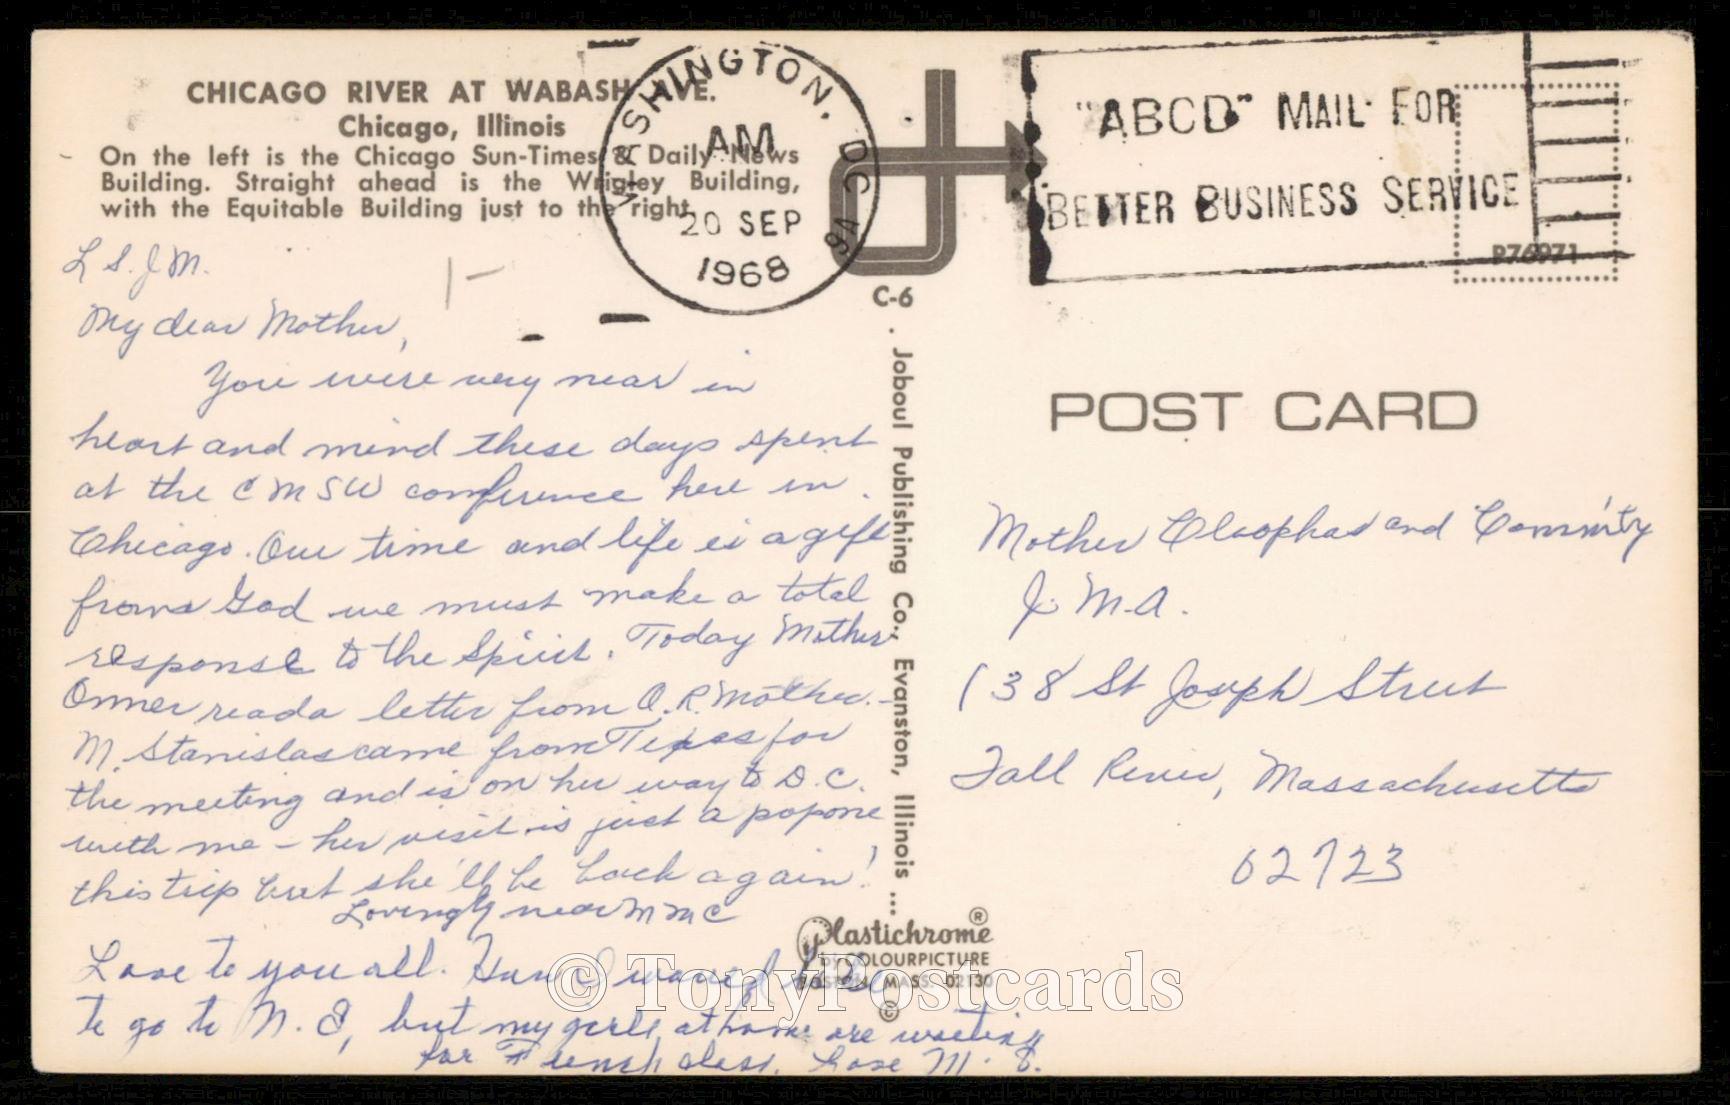 CHICAGO RIVER AT WABASH AVE.
Chicago, Illinois
On the left is the Chicago Sun-Times & Daily News
Building. Straight ahead is the Wrigley Building,
with the Equitable Building just to the right.
WASHINGTON, DC
AM
20 SEP
1968
9A
"ABCD" MAIL FOR
BETTER BUSINESS SERVICE
P76971
C-6
L S. J M.
My dear Mother,
You were very near in
heart and mind these days spent
at the CMSW conference here in
Chicago. Our time and life is a gift
from God we must make a total
response to the Spirit. Today Mother
Omer read a letter from O.R. Mother.
M. Stanislas came from Texas for
the meeting and is on her way to D.C.
with me - her visit is just a
this trip but she'll be back again!
Lovingly near M M C
Love to you all. wanted
to go to N. E, but my girls at home are waiting
for French class. Love M. S.
. Joboul Publishing Co., Evanston, Illinois ...
POST CARD
Mother Cleophas and Comm'ity
J. M. A.
138 St Joseph Street
Fall River, Massachusetts
02723
Plastichrome ®
BY COLOURPICTURE
BOSTON, MASS. 02130
©
© TonyPostcards